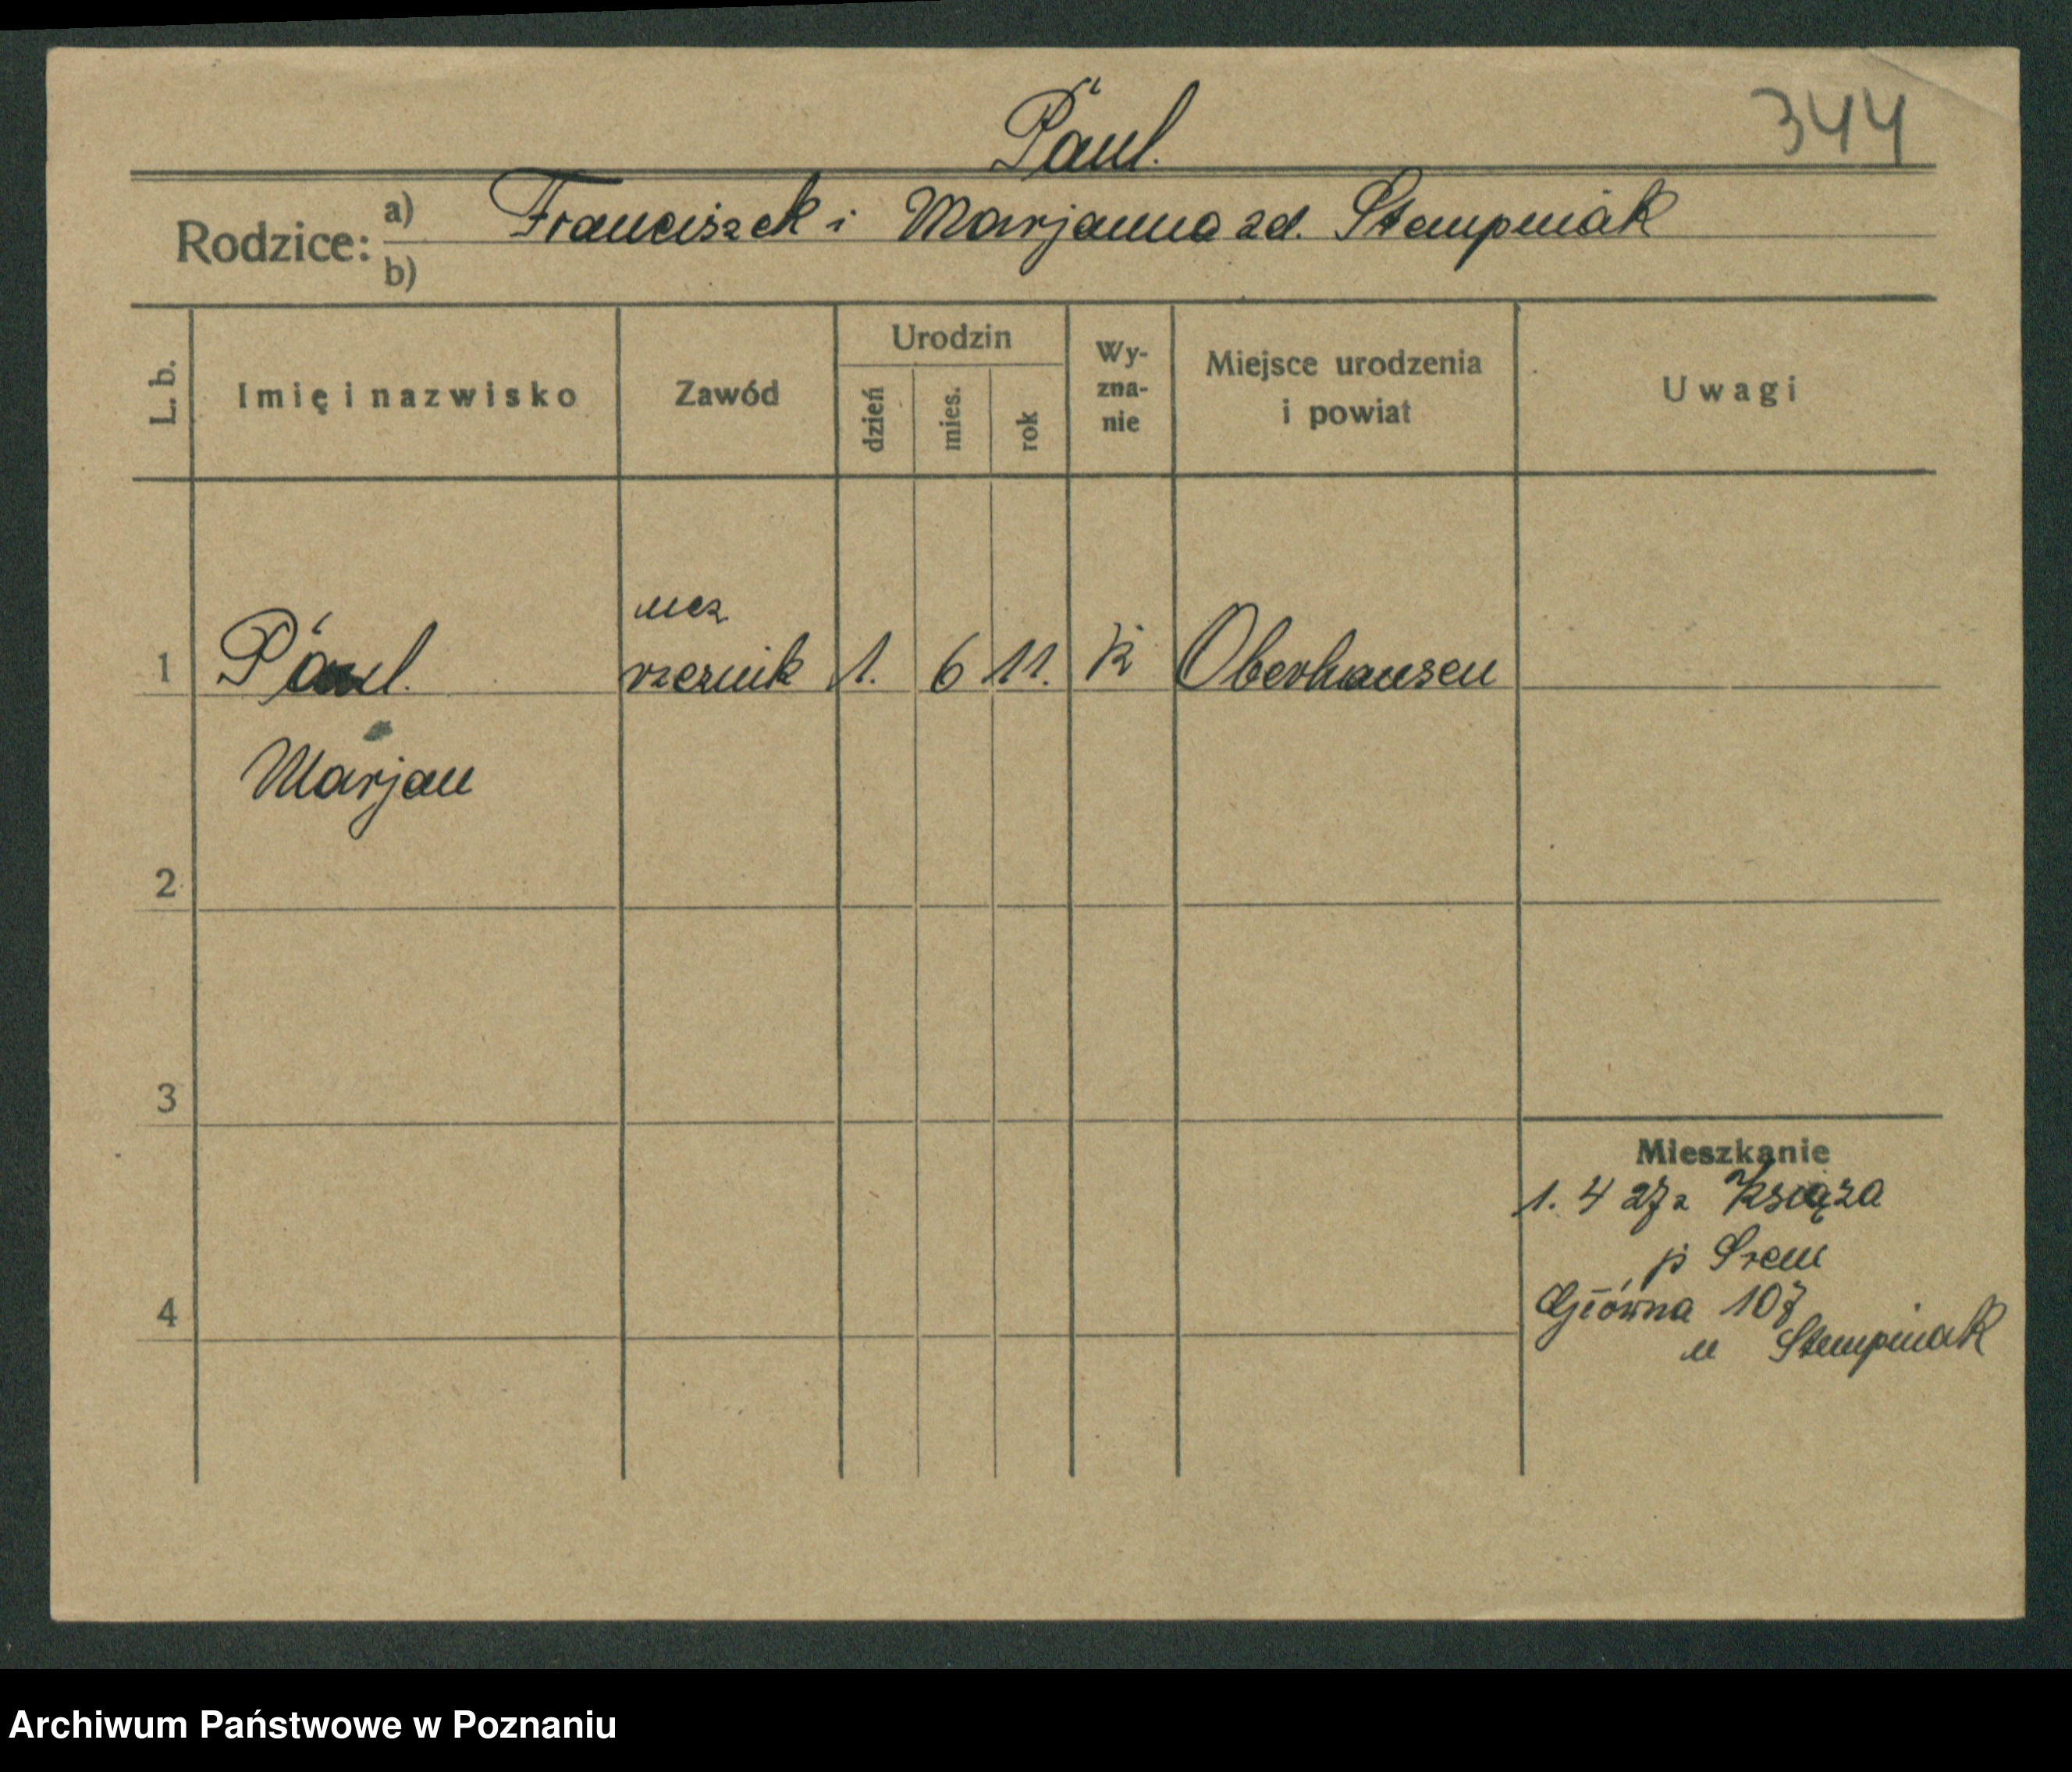 Paul.
344
Rodzice: a) Franciszek i Marjanna zd. Stempniak
b)
L. b.
Imię i nazwisko
Zawód
Urodzin
dzień
mies.
rok
Wy-
zna-
nie
Miejsce urodzenia
i powiat
Uwagi
ucz
1 Paul. rzeźnik 1. 6 11. k Oberhausen
Marjan
2
3
4
Mieszkanie
1. 4 27 z Książa
p Śrem
Główna 107
u Stempniak
Archiwum Państwowe w Poznaniu